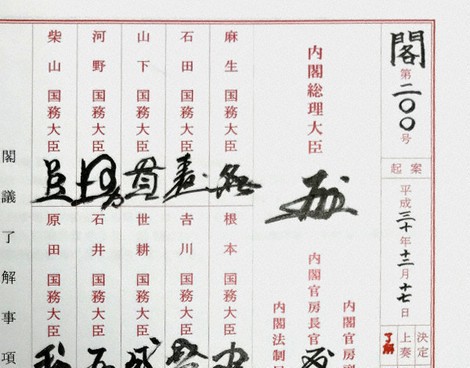 閣 第二〇〇号
起案
平成三十年十二月十七日
決定
上奏
了解
内閣総理大臣
内閣官房副
内閣官房長官
内閣法制局
麻生 国務大臣
石田 国務大臣
山下 国務大臣
河野 国務大臣
柴山 国務大臣
根本 国務大臣
吉川 国務大臣
世耕 国務大臣
石井 国務大臣
原田 国務大臣
閣議了解事項